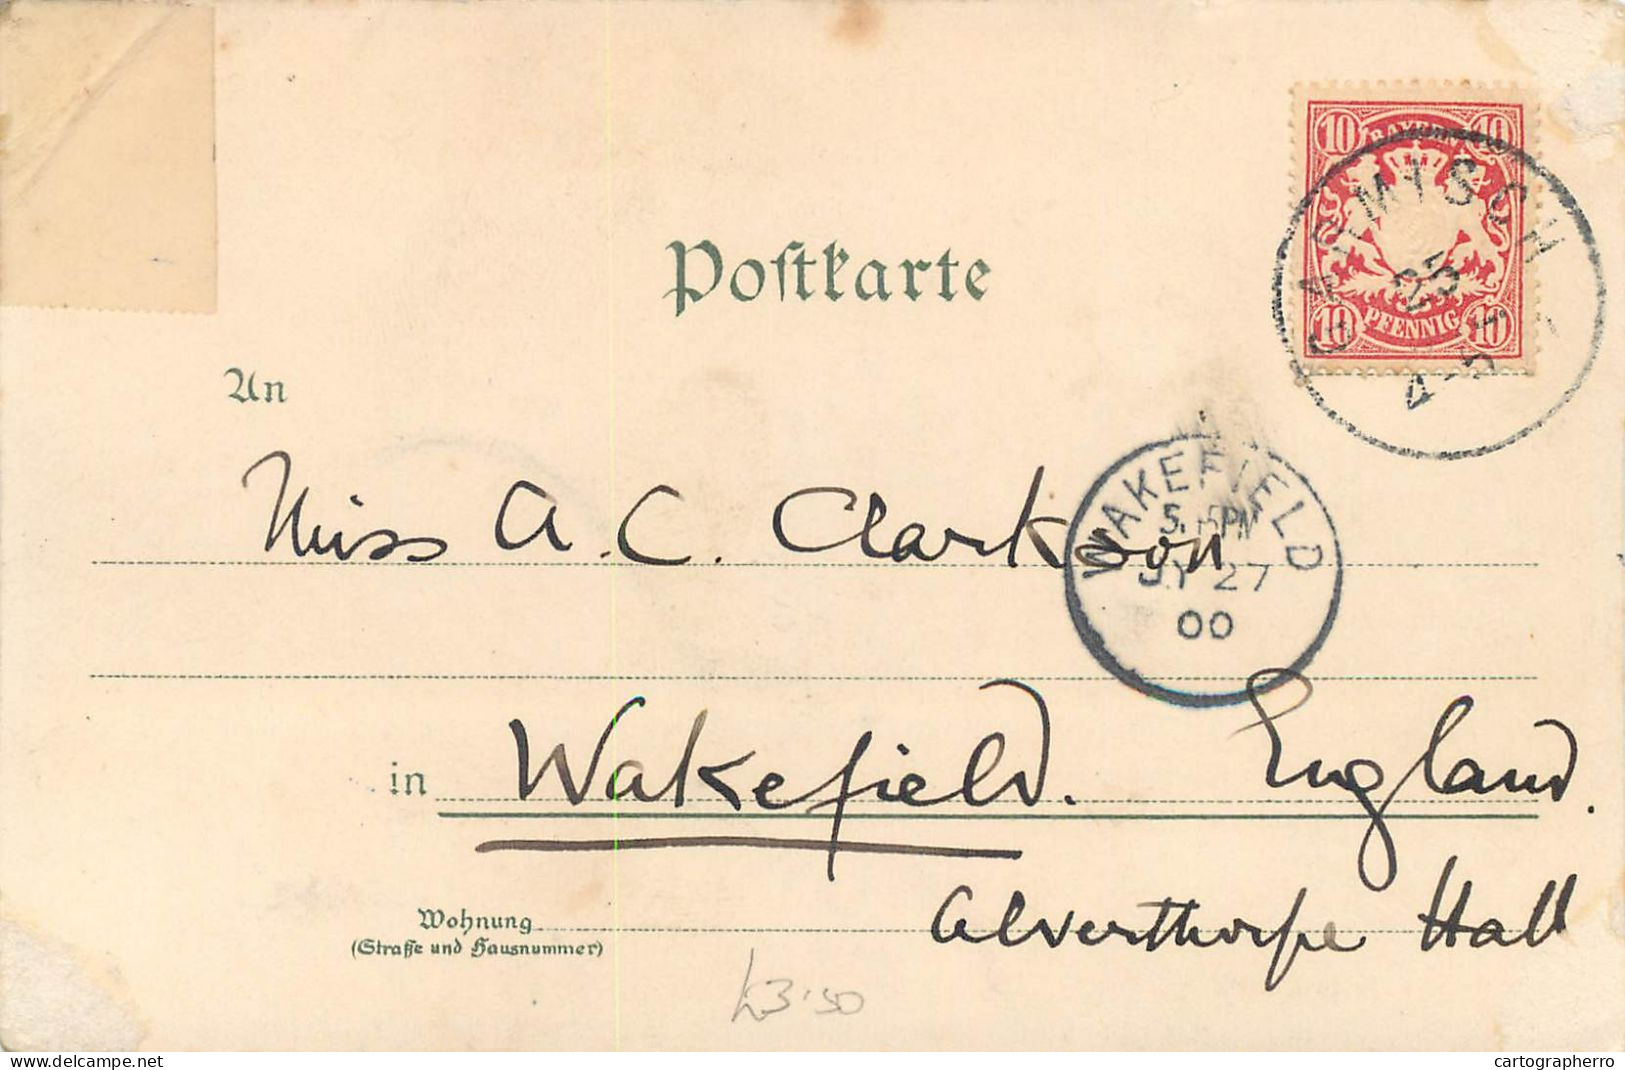 10 BAYERN 10
10 PFENNIG 10
GARMISCH
25
4-5
Postkarte
An
WAKEFIELD
JY 27
00
Miss A. C. Clarkson
in Wakefield. England.
Wohnung Alverthorpe Hall
(Straße und Hausnummer)
£3.50
www.delcampe.net
cartographerro